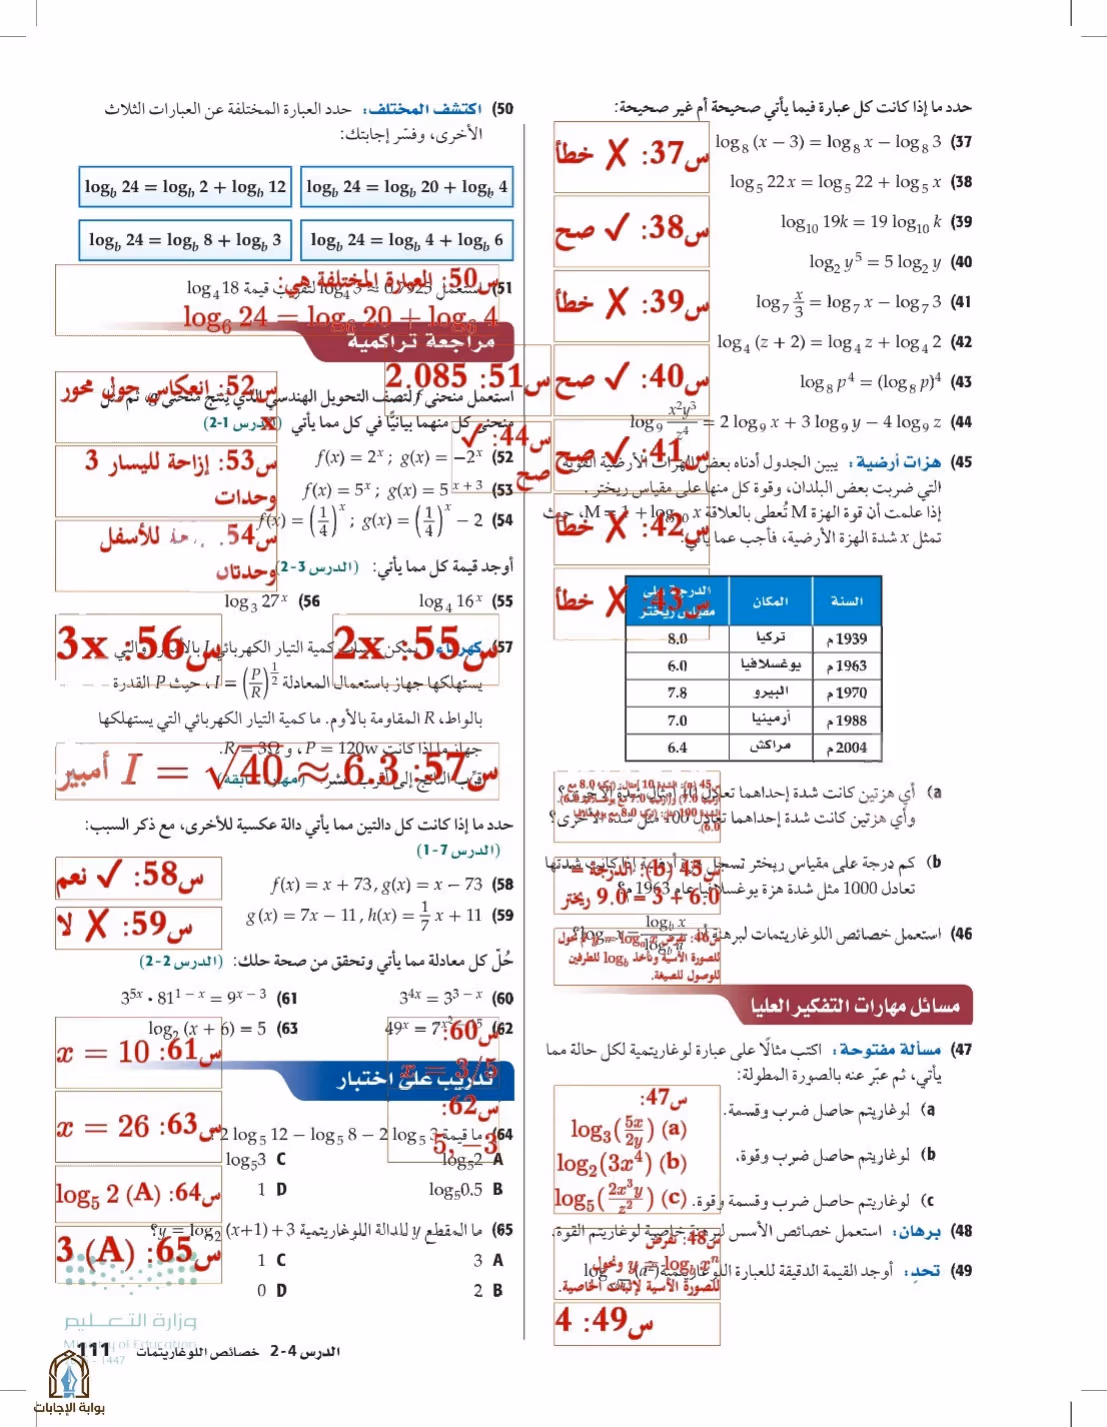 حدد ما إذا كانت كل عبارة فيما يأتي صحيحة أم غير صحيحة:
37) log₈ (x − 3) = log₈ x − log₈ 3
س37: ✗ خطأ
38) log₅ 22x = log₅ 22 + log₅ x
س38: ✓ صح
39) log₁₀ 19k = 19 log₁₀ k
40) log₂ y⁵ = 5 log₂ y
س39: ✗ خطأ
41) log₇ x/3 = log₇ x − log₇ 3
42) log₄ (z + 2) = log₄ z + log₄ 2
س40: ✓ صح
43) log₈ p⁴ = (log₈ p)⁴
44) log₉ x²y³/z⁴ = 2 log₉ x + 3 log₉ y − 4 log₉ z
س44: ✓ صح
س41: ✓ صح
45) هزات أرضية: يبين الجدول أدناه بعض الهزات الأرضية القوية
التي ضربت بعض البلدان، وقوة كل منها على مقياس ريختر.
إذا علمت أن قوة الهزة M تُعطى بالعلاقة M = 1 + log₁₀ x، حيث
تمثل x شدة الهزة الأرضية، فأجب عما يأتي:
س42: ✗ خطأ
س43: ✗ خطأ
السنة المكان الدرجة على مقياس ريختر
1939م تركيا 8.0
1963م يوغسلافيا 6.0
1970م البيرو 7.8
1988م أرمينيا 7.0
2004م مراكش 6.4
a) أي هزتين كانت شدة إحداهما تعادل 10 أمثال شدة الأخرى؟
وأي هزتين كانت شدة إحداهما تعادل 100 مثل شدة الأخرى؟
b) كم درجة على مقياس ريختر تسجل هزة أرضية إذا كانت شدتها
تعادل 1000 مثل شدة هزة يوغسلافيا عام 1963م؟
س45 (b): الدرجة =
6.0 + 3 = 9.0 ريختر
46) استعمل خصائص اللوغاريتمات لبرهنة أن logₐ x = log_b x / log_b a؟
للصورة الأسية وتأخذ log_b للطرفين
للوصول للصيغة.
مسائل مهارات التفكير العليا
47) مسألة مفتوحة: اكتب مثالًا على عبارة لوغاريتمية لكل حالة مما
يأتي، ثم عبّر عنه بالصورة المطولة:
a) لوغاريتم حاصل ضرب وقسمة.
b) لوغاريتم حاصل ضرب وقوة.
c) لوغاريتم حاصل ضرب وقسمة وقوة.
س47:
(a) log₃(5x/2y)
(b) log₂(3x⁴)
(c) log₅(2x³y/z²)
48) برهان: استعمل خصائص الأسس لبرهنة خاصية لوغاريتم القوة.
س48: نفرض
y = log_b xⁿ ونحول
للصورة الأسية لإثبات الخاصية.
49) تحدٍ: أوجد القيمة الدقيقة للعبارة اللوغاريتمية
س49: 4
50) اكتشف المختلف: حدد العبارة المختلفة عن العبارات الثلاث
الأخرى، وفسّر إجابتك:
log_b 24 = log_b 20 + log_b 4
log_b 24 = log_b 2 + log_b 12
log_b 24 = log_b 4 + log_b 6
log_b 24 = log_b 8 + log_b 3
س50: العبارة المختلفة هي:
log₆ 24 = log₆ 20 + log₆ 4
51) استعمل log₄ 3 ≈ 0.7925 لتقريب قيمة log₄ 18
مراجعة تراكمية
س51: 2.085
استعمل منحنى f لتصف التحويل الهندسي الذي ينتج منحنى g، ثم مثل
منحنى كل منهما بيانيًّا في كل مما يأتي (الدرس 1-2)
س52: إنعكاس حول محور x
52) f(x) = 2ˣ ; g(x) = −2ˣ
53) f(x) = 5ˣ ; g(x) = 5ˣ⁺³
س53: إزاحة لليسار 3 وحدات
54) f(x) = (1/4)ˣ ; g(x) = (1/4)ˣ − 2
س54: للأسفل وحدتان
أوجد قيمة كل مما يأتي: (الدرس 3-2)
55) log₄ 16ˣ
56) log₃ 27ˣ
س55: 2x
س56: 3x
57) كهرباء: يمكن حساب كمية التيار الكهربائي I بالأمبير والتي
يستهلكها جهاز باستعمال المعادلة I = (P/R)^½، حيث P القدرة
بالواط، R المقاومة بالأوم. ما كمية التيار الكهربائي التي يستهلكها
جهاز ما إذا كانت P = 120w، و R = 3Ω.
قرّب الناتج إلى أقرب عشر. (مهارة سابقة)
س57: I = √40 ≈ 6.3 أمبير
حدد ما إذا كانت كل دالتين مما يأتي دالة عكسية للأخرى، مع ذكر السبب:
(الدرس 7-1)
58) f(x) = x + 73, g(x) = x − 73
س58: ✓ نعم
59) g(x) = 7x − 11, h(x) = 1/7 x + 11
س59: ✗ لا
حُلّ كل معادلة مما يأتي وتحقق من صحة حلك: (الدرس 2-2)
60) 3⁴ˣ = 3³⁻ˣ
61) 3⁵ˣ · 81¹⁻ˣ = 9ˣ⁻³
63) log₂ (x + 6) = 5
س60: x = 3/5
س61: x = 10
تدريب على اختبار
س62: 5, −3
س63: x = 26
64) ما قيمة 2 log₅ 12 − log₅ 8 − 2 log₅ 3؟
A log₅2
C log₅3
B log₅0.5
D 1
س64: (A) log₅ 2
65) ما المقطع y للدالة اللوغاريتمية y = log₂ (x+1) + 3؟
A 3
C 1
B 2
D 0
س65: (A) 3
وزارة التعليم
Ministry of Education
1447
الدرس 4-2 خصائص اللوغاريتمات 111
بوابة الإجابات